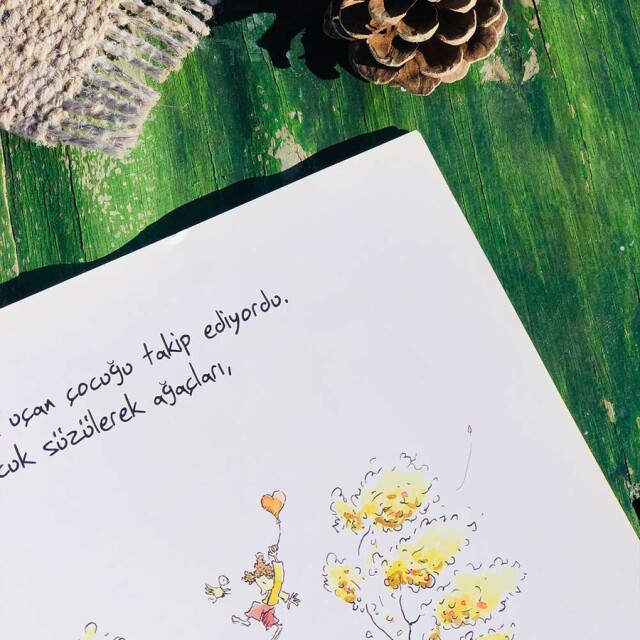 uçan çocuğu takip ediyordu.
süzülerek ağaçları,